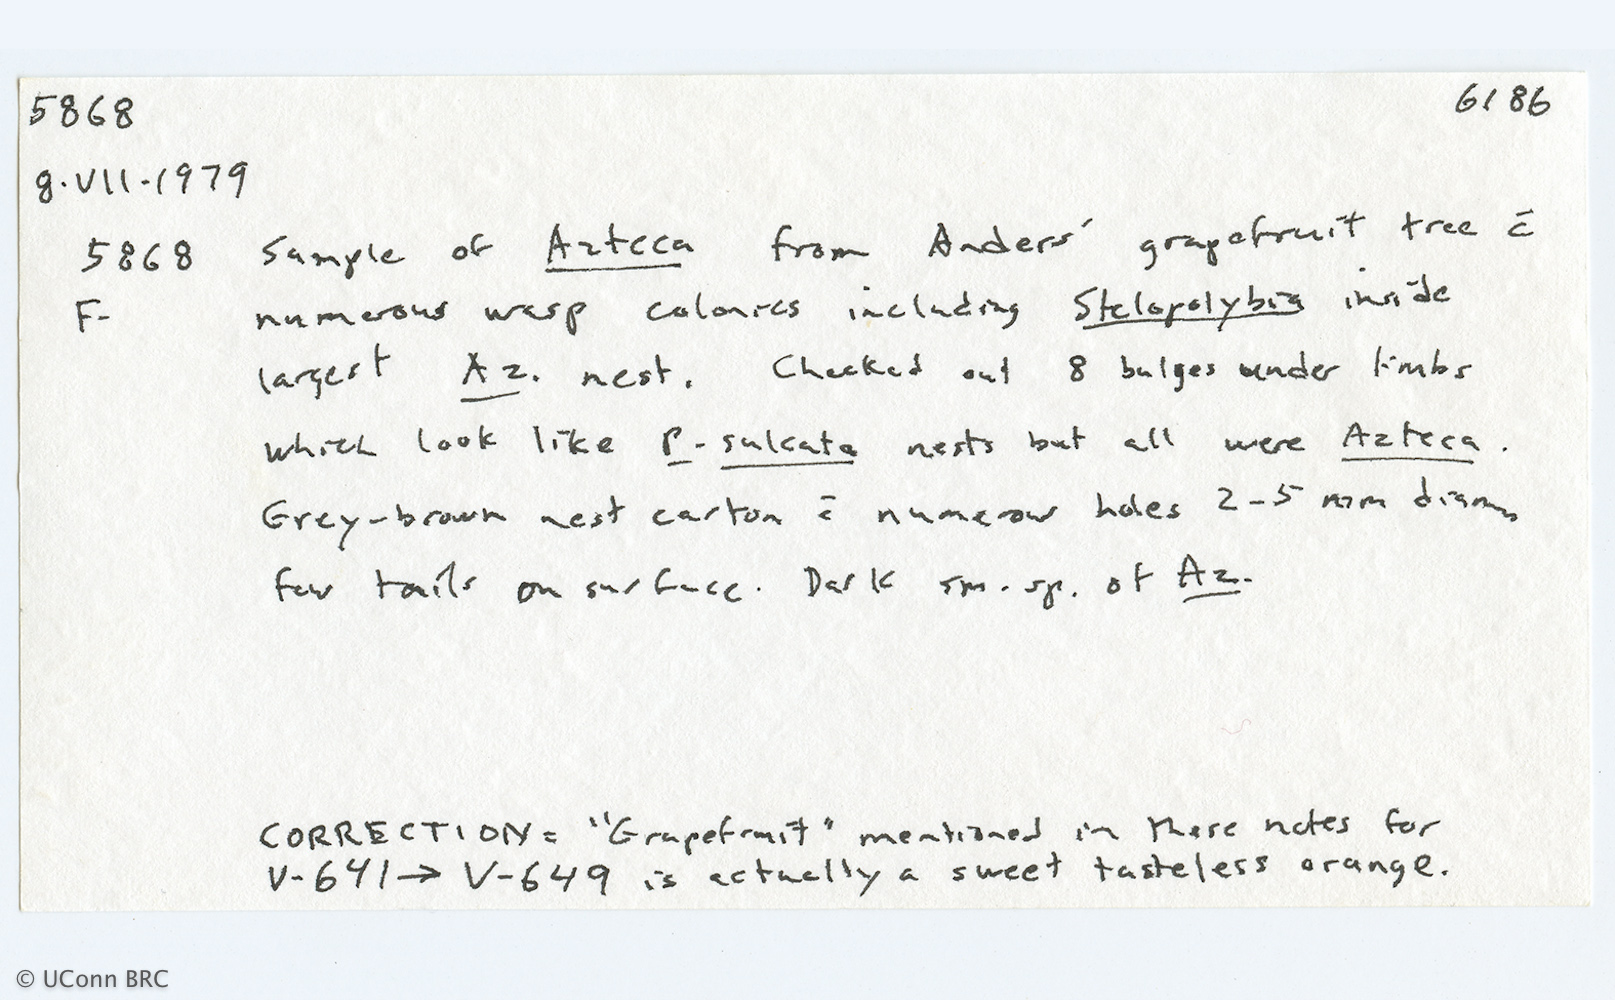 5868 6186
8.VII.1979
5868 Sample of Azteca from Anders' grapefruit tree c̄
F- numerous wasp colonies including Stelopolybia inside
largest Az. nest. Checked out 8 bulges under limbs
which look like P. sulcata nests but all were Azteca.
Grey-brown nest carton c̄ numerous holes 2-5 mm diam,
few tails on surface. Dark sm. sp. of Az.
CORRECTION = "Grapefruit" mentioned in these notes for
V-641→ V-649 is actually a sweet tasteless orange.
© UConn BRC